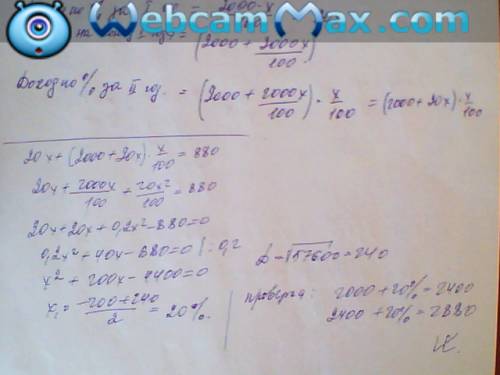 www.WebcamMax.com
за I = 2000·x
= (2000 + 2000x/100)
Доход по % за II год. = (2000 + 2000x/100) · x/100 = (2000 + 20x) · x/100
20x + (2000 + 20x) · x/100 = 880
20x + 2000x/100 + 20x²/100 = 880
20x + 20x + 0,2x² - 880 = 0
0,2x² + 40x - 880 = 0 | : 0,2
x² + 200x - 4400 = 0
x₁ = (-200 + 240)/2 = 20%.
D = √57600 = 240
проверка: 2000 + 20% = 2400
2400 + 20% = 2880